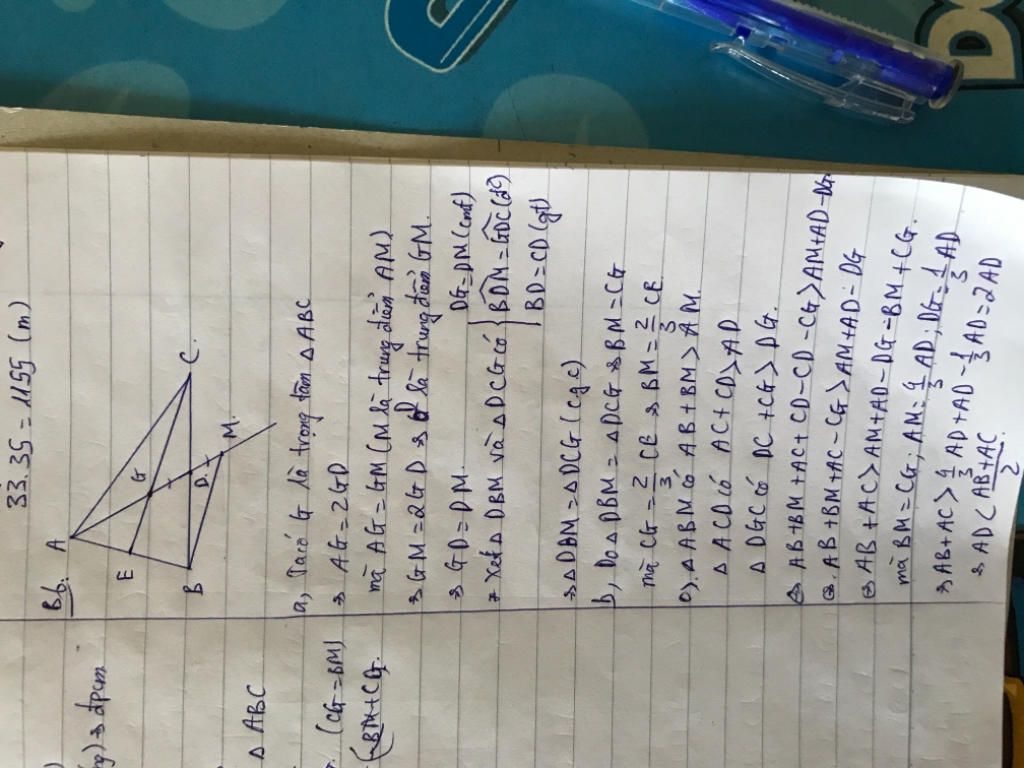 33.35 = 1155 (m)
B6:
A
E
G
B
D
C.
M.
a, Ta có G là trọng tâm △ABC
⇒ AG = 2GD
mà AG = GM (M là trung điểm AM)
⇒ GM = 2GD ⇒ D là trung điểm GM.
⇒ GD = DM.
* Xét △DBM và △DCG có { DG = DM (cmt)
BDM = GDC (đđ)
BD = CD (gt)
⇒ △DBM = △DCG (c.g.c)
b, Do △DBM = △DCG ⇒ BM = CG
mà CG = 2/3 CE ⇒ BM = 2/3 CE.
c). △ABM có AB + BM > AM.
△ACD có AC + CD > AD
△DGC có DC + CG > DG.
⇔ AB + BM + AC + CD - CD - CG > AM + AD - DG
⇔ AB + BM + AC - CG > AM + AD - DG
⇔ AB + AC > AM + AD - DG - BM + CG.
mà BM = CG; AM = 4/3 AD; DG = 1/3 AD
⇒ AB + AC > 4/3 AD + AD - 1/3 AD = 2AD
⇒ AD < AB + AC / 2
) ⇒ đpcm
△ABC
(CG = BM)
- BM + CG.